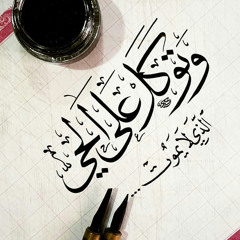 وَتَوَكَّلْ عَلَى الْحَيِّ
الَّذِي لَا يَمُوتُ...